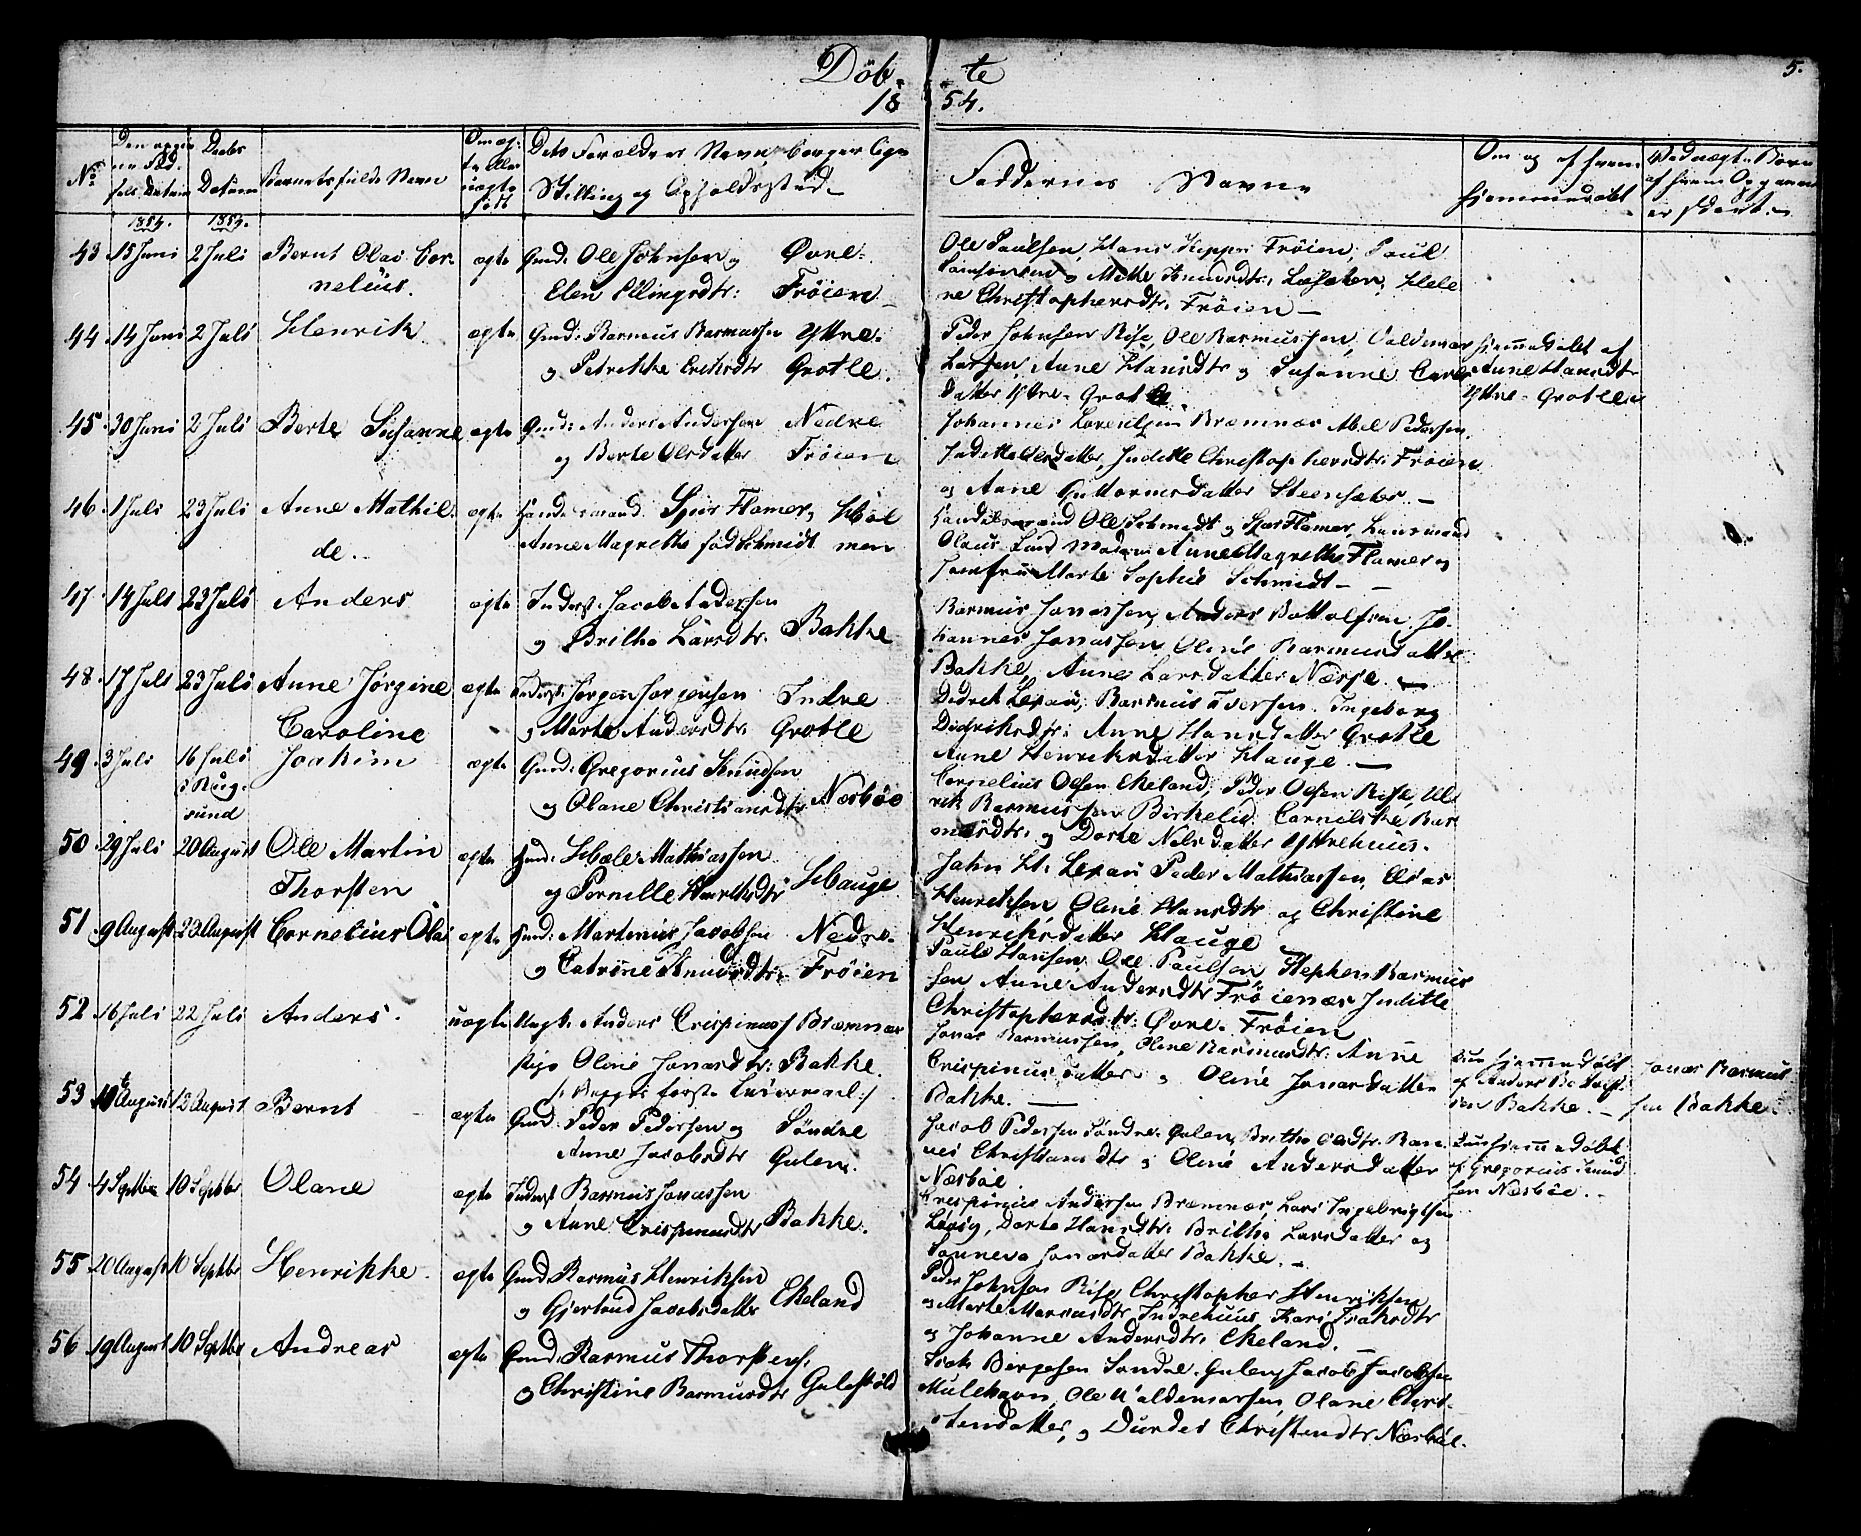 Döb- te
5.
18 54.
No
Daabs Datum
Barnets fulde Navn
Om ægte eller uægte født
Dets Forældres Navn, Borgerlige Stilling og Opholdssted
Faddernes Navne
Om og af hvem hjemmedøbt
1854. 1854.
43 15 Juni 2 Juli Bernt Olai Cor- ægte Gmd: Ole Johnsen og Øvre-
nelius. Elen Ellingsdtr: Frøien
Ole Paulsen, Hans Frøien, Paul
og Mette Knudsdtr: Hele
ne Christophersdtr: Frøien —
44 14 Juni 2 Juli Henrik ægte Gmd: Rasmus Rasmussen Yttre-
og Petrikke Eriksdtr Grotle.
Peder Johnsen Rise, Ole Rasmussen, Valdemar
Larsen, Anne Hansdtr og Susanne
datter Yttre-Grotle.
hjemmedøbt af
Anne Hansdtr
Yttre-Grotle
45 30 Juni 2 Juli Berte Susanne ægte Gmd: Anders Andersen Nedre
og Berte Olsdatter Frøien
Johannes Lorentsen Bræmnæs Abel Pedersen,
Juditte Christophersdtr: Frøien
og Anne Guttormsdatter Steensæter —
46 1 Juli 23 Juli Anne Mathil- ægte Handelsmand Flamer og Hol
de. Anne Magrethe fød Schmidt men
Handelsmand Ole Schmidt og Flamer, Lensmand
Olaus Lund Madam Anne Magrethe Flamer og
Jomfrue Marte Sophie Schmidt —
47 14 Juli 23 Juli Anders ægte Inderst: Jacob Andersen
og Brithe Larsdtr: Bakke
Rasmus Jonassen, Anders Bottolfsen Jo-
hannes Jonassen Oline Rasmusdatter
Bakke, Anne Larsdatter
48 17 Juli 23 Juli Anne Jørgine ægte Inderst: Jørgen Jørgensen Indre
Caroline og Marte Andersdtr: Grotle
Rasmus Iversen Ingeborg
Didriksdtr: Anne Hansdatter Grotle
Anne Henriksdatter Hauge —
49 3 Juli 16 Juli Joakim ægte Gmd: Gregorius Knudsen
i Rug-
sund og Olane Christiansdtr Næsbøe
Cornelius Olsen Ekeland, Peder Olsen Rise, Ul
rik Rasmussen Birkelid, Cornelike Ras
musdtr: og Dorte Nilsdatter Yttrehuus.
50 29 Juli 20 August Ole Martin ægte Gmd: Mathiassen
Thorsten og Pernille Henriksdtr Hauge
John H: Peder Mathiassen, Elias
Henriksen Oline Hansdtr og Christine
Henriksdatter Hauge
51 9 August 20 August Cornelius Olai ægte Gmd: Martinus Jacobsen Nedre-
og Catrine Knudsdtr: Frøien
Paul Hansen, Ole Paulsen, Stephen Rasmus
sen Anne Andersdtr Frøienæs Juditte
Christophersdtr: Øvre-Frøien
52 16 Juli 22 Juli Anders. uægte Ungk: Anders Crispinus Bræmnæs
Pige Oline Jonasdtr: Bakke.
/: Begges første Leiermaal :/
Jonas Rasmussen, Oline Rasmusdtr: Anne
Crispinusdatter og Oline Jonasdatter
Bakke. —
hjemmedøbt
af Anders
Bakke. —
Jonas Rasmus
sen Bakke
53 10 August 13 August Bernt ægte Gmd: Peder Pedersen og Søndre
Anne Jacobsdtr Gulen.
Jacob Pedersen Søndre-Gulen, Brithe Olsdtr: Ran-
nei Christiansdtr og Oline Andersdatter
Næsbøe
hjemmedøbt
af Gregorius Knud
sen Næsbøe. —
54 4 Septbr 10 Septbr Olane ægte Inderst Rasmus Jonassen
og Anne Crispinusdtr Bakke.
Crispinus Andersen Bræmnæs, Lars Ingebrigtsen
Dorte Hansdtr: Brithe Larsdatter og
Sønneva Jonasdatter Bakke. —
55 20 August 10 Septbr Henrikke ægte Gmd Rasmus Henriksen
og Gjertrud Jacobsdatter Ekeland
Peder Johnsen Rise Christopher Henriksen
og Marte Indrehuus, Kari
og Johanne Andersdtr: Ekeland. —
56 19 August 10 Septbr Andreas ægte Gmd: Rasmus Thorstens:
og Christine Rasmusdtr Gulestøld
Isak Børgesen Søndre-Gulen, Jacob Jacobsen
Mulehavn, Ole Valdemarsen, Olane Chri-
stensdatter, og Durdei Christensdtr Næsbøe.